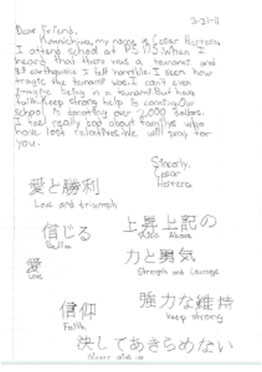 3-31-11
Dear Friend,
Konnichiwa, my name is Cesar Herrera.
I attend school at PS 115. When I
heard that there was a tsunami and
earthquake I felt horrible. I seen how
tragic the tsunami was. I can't even
imagine being in a tsunami. But have
faith. Keep strong help is coming. Our
school is donating over 2,000 dollars.
I feel really bad about families who
have lost relatives. We will pray for
you.
Sincerly,
Cesar
Herrera
愛と勝利
Love and triumph
信じる
Belive
上昇上記の
Above
愛
Love
力と勇気
Strength and Courage
信仰
Faith
強力な維持
Keep strong
決してあきらめない
Never give up